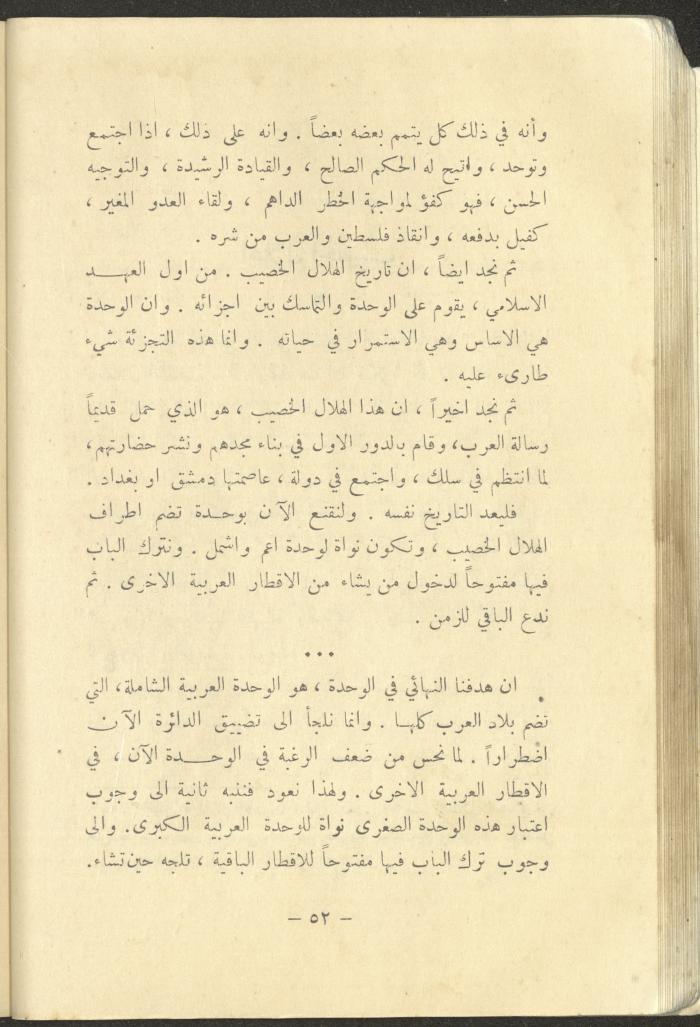 وأنه في ذلك كل يتمم بعضه بعضاً . وانه على ذلك ، اذا اجتمع
وتوحد ، واتيح له الحكم الصالح ، والقيادة الرشيدة ، والتوجيه
الحسن ، فهو كفؤ لمواجهة الخطر الداهم ، ولقاء العدو المغير ،
كفيل بدفعه ، وانقاذ فلسطين والعرب من شره .
ثم نجد ايضاً ، ان تاريخ الهلال الخصيب . من اول العهد
الاسلامي ، يقوم على الوحدة والتماسك بين اجزائه . وان الوحدة
هي الاساس وهي الاستمرار في حياته . وانما هذه التجزئة شيء
طارىء عليه .
ثم نجد اخيراً ، ان هذا الهلال الخصيب ، هو الذي حمل قديماً
رسالة العرب، وقام بالدور الاول في بناء مجدهم ونشر حضارتهم،
لما انتظم في سلك ، واجتمع في دولة ، عاصمتها دمشق او بغداد .
فليعد التاريخ نفسه . ولنقنع الآن بوحدة تضم اطراف
الهلال الخصيب ، وتكون نواة لوحدة اعم واشمل . ونترك الباب
فيها مفتوحاً لدخول من يشاء من الاقطار العربية الاخرى . ثم
ندع الباقي للزمن .
•••
ان هدفنا النهائي في الوحدة ، هو الوحدة العربية الشاملة، التي
تضم بلاد العرب كلها . وانما نلجأ الى تضييق الدائرة الآن
اضطراراً . لما نحس من ضعف الرغبة في الوحدة الآن ، في
الاقطار العربية الاخرى . ولهذا نعود فننبه ثانية الى وجوب
اعتبار هذه الوحدة الصغرى نواة للوحدة العربية الكبرى. والى
وجوب ترك الباب فيها مفتوحاً للاقطار الباقية ، تلجه حين تشاء.
– ٥٢ –